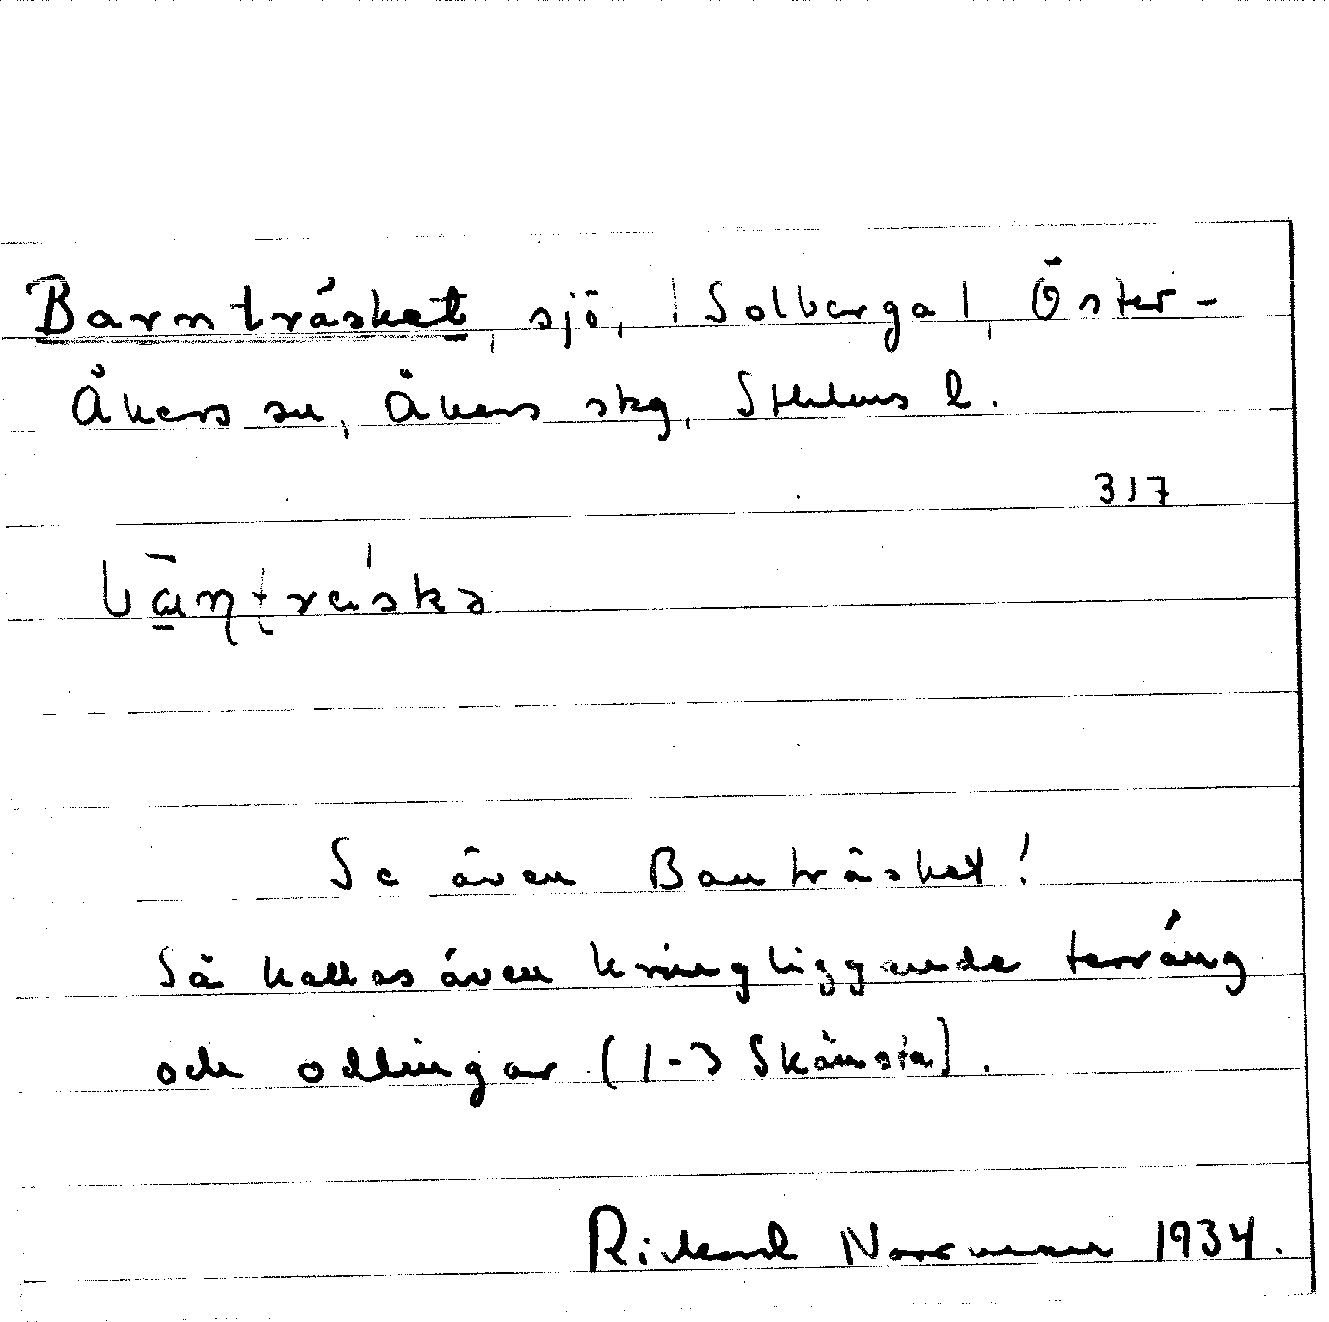 Barnträsket, sjö, |Solberga|, Öster-
Åkers sn, Åkers skg, Sthlms l.
317
bāṇträskə
Se även Banträsket!
Så kallas även kringliggande terräng
och odlingar (1-3 Skånsta).
Rickard Norrman 1934.